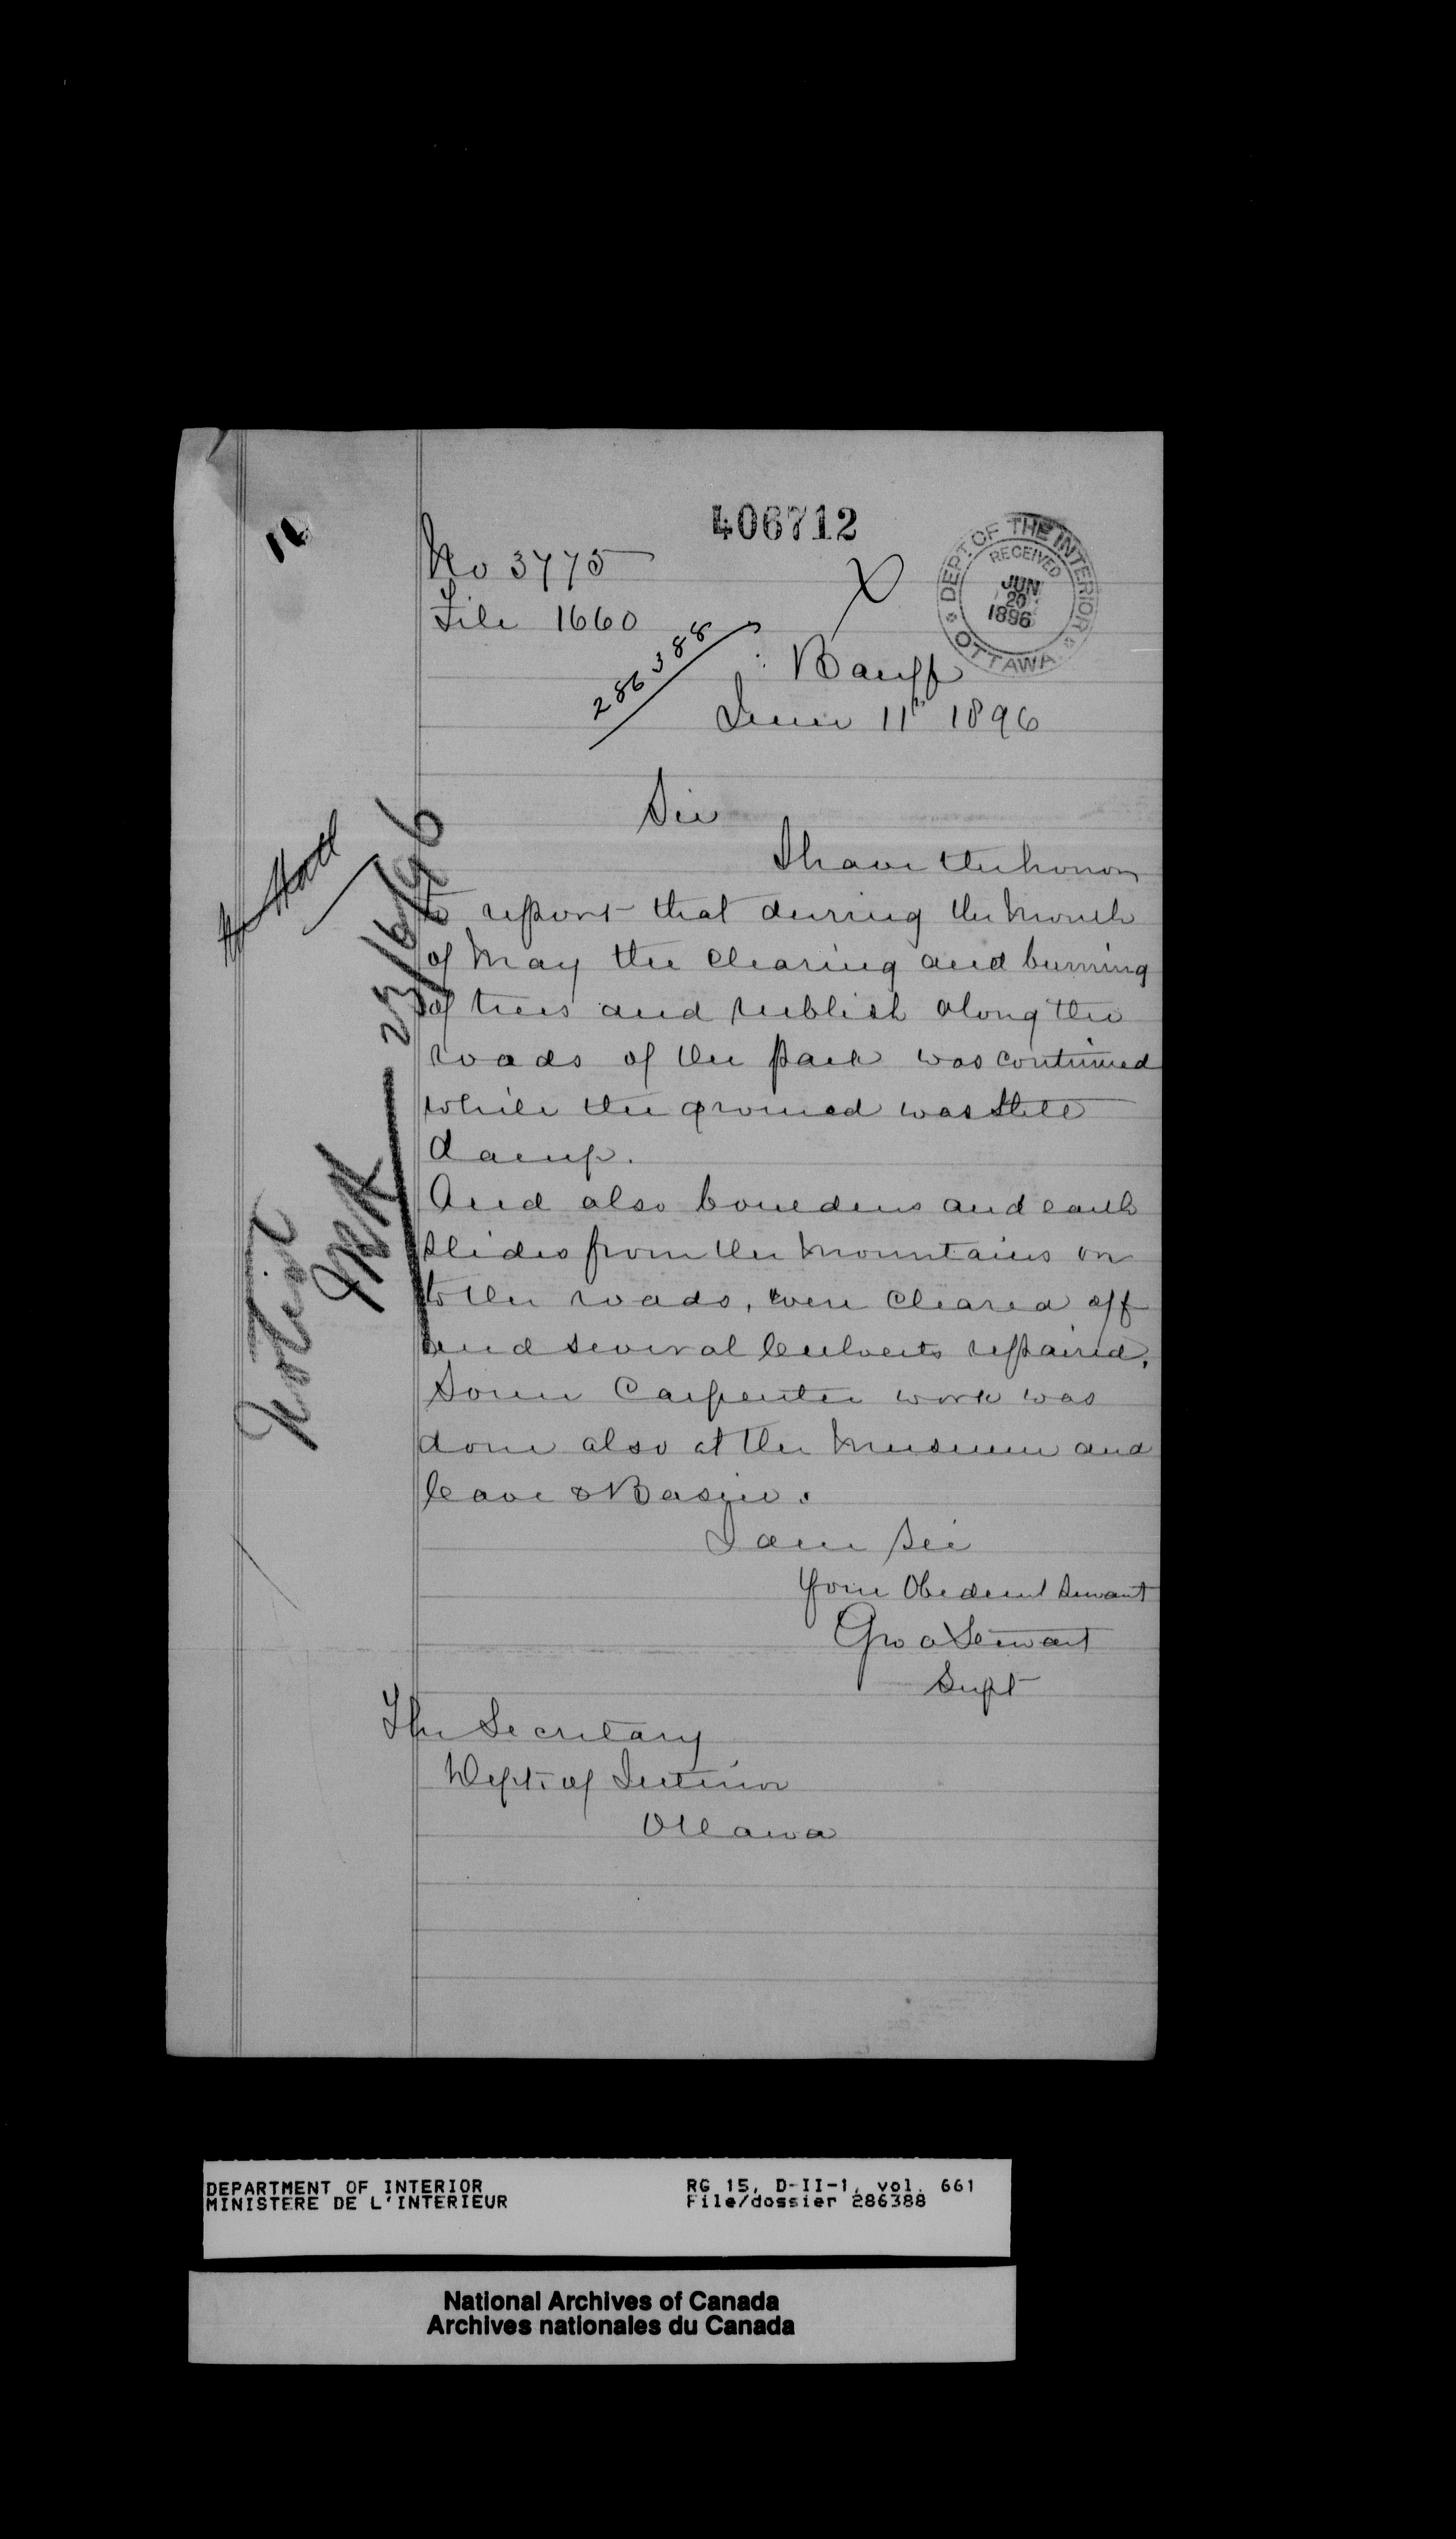 406712
No 3775
File 1660
286388
DEPT. OF THE INTERIOR
RECEIVED
JUN
20
1896
OTTAWA
Banff
June 11th 1896
Sir
I have the honor
to report that durring the month
of May the clearing and burning
of trees and rubbish along the
roads of the park was continued
while the ground was still
damp.
And also boulders and earth
slides from the mountains on
to the roads, were cleared off
and several culverts repaired.
Some Carpenter work was
done also at the Museum and
Cave & Basin.
I am Sir
Your Obedient Servant
Geo A Stewart
Supt
The Secretary
Dept. of Interior
Ottawa
Noted
23/6/96
DEPARTMENT OF INTERIOR
MINISTERE DE L'INTERIEUR
RG 15, D-II-1, vol. 661
File/dossier 286388
National Archives of Canada
Archives nationales du Canada